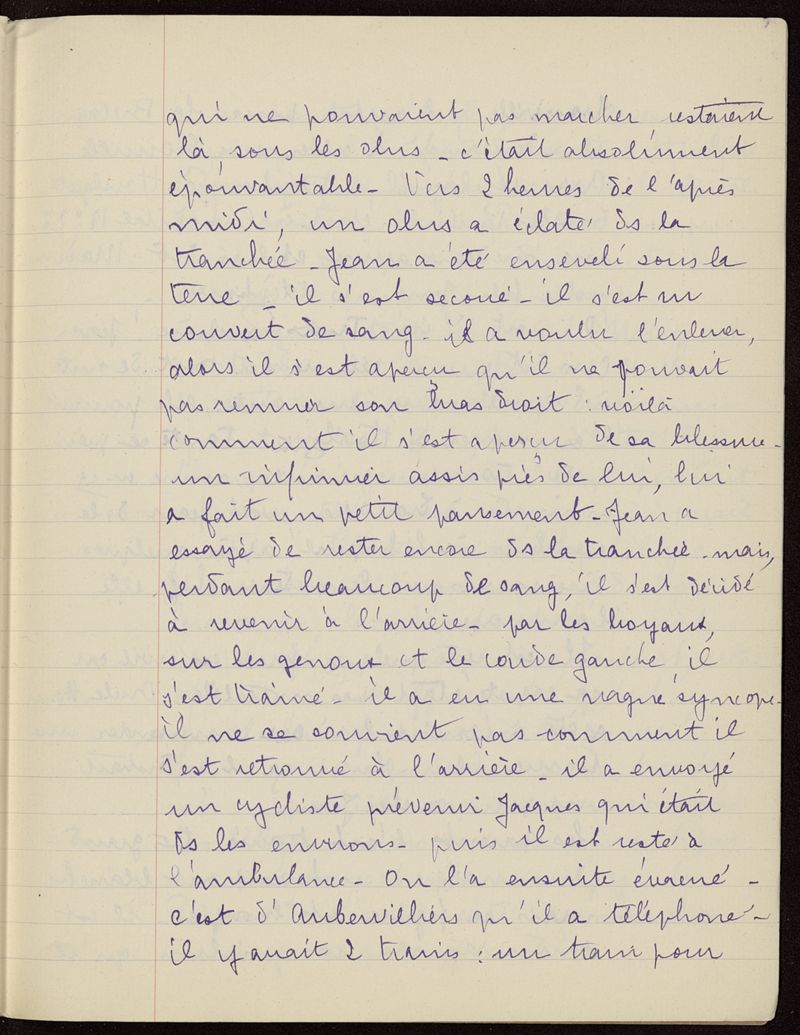 qui ne pouvaient pas marcher restaient
là, sous les obus - c'était absolument
épouvantable - Vers 2 heures de l'après
midi, un obus a éclaté ds la
tranchée - Jean a été enseveli sous la
terre - il s'est secoué - il s'est vu
couvert de sang - il a voulu l'enlever,
alors il s'est aperçu qu'il ne pouvait
pas remuer son bras droit : voilà
comment il s'est aperçu de sa blessure -
un infirmier assis près de lui, lui
a fait un petit pansement - Jean a
essayé de rester encore ds la tranchée - mais,
perdant beaucoup de sang, il s'est décidé
à revenir à l'arrière - par les boyaux,
sur les genoux et le coude gauche il
s'est traîné - il a eu une vague syncope -
il ne se souvient pas comment il
s'est retrouvé à l'arrière - il a envoyé
un cycliste prévenir Jacques qui était
ds les environs - puis il est resté à
l'ambulance - On l'a ensuite évacué -
c'est d'Aubervilliers qu'il a téléphoné -
il y avait 2 trains : un train pour